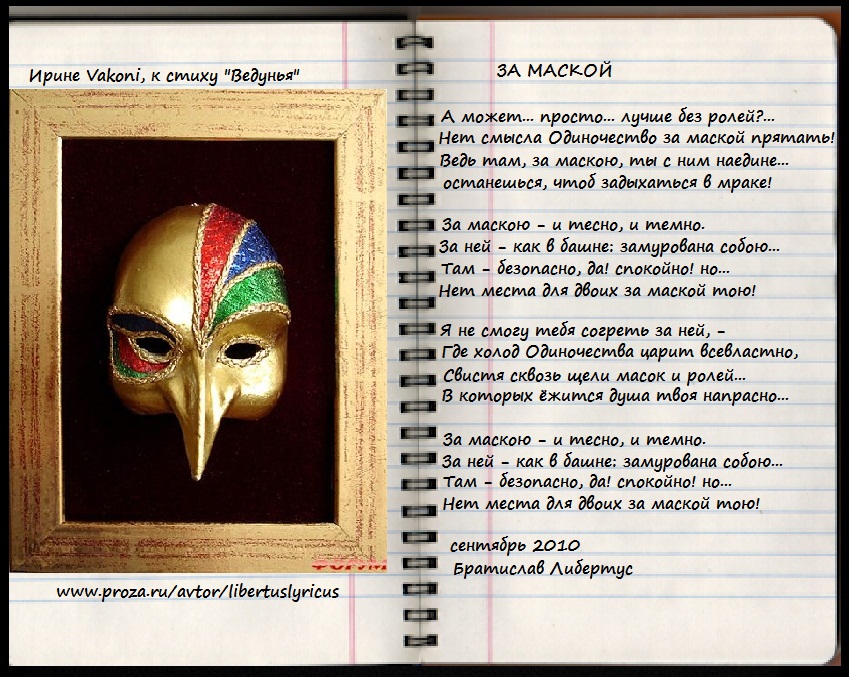 Ирине Vakoni, к стиху "Ведунья"
www.proza.ru/avtor/libertuslyricus
ЗА МАСКОЙ
А может... просто... лучше без ролей?...
Нет смысла Одиночество за маской прятать!
Ведь там, за маскою, ты с ним наедине...
останешься, чтоб задыхаться в мраке!
За маскою - и тесно, и темно.
За ней - как в башне: замурована собою...
Там - безопасно, да! спокойно! но...
Нет места для двоих за маской тою!
Я не смогу тебя согреть за ней, -
Где холод Одиночества царит всевластно,
Свистя сквозь щели масок и ролей...
В которых ёжится душа твоя напрасно...
За маскою - и тесно, и темно.
За ней - как в башне: замурована собою...
Там - безопасно, да! спокойно! но...
Нет места для двоих за маской тою!
сентябрь 2010
Братислав Либертус